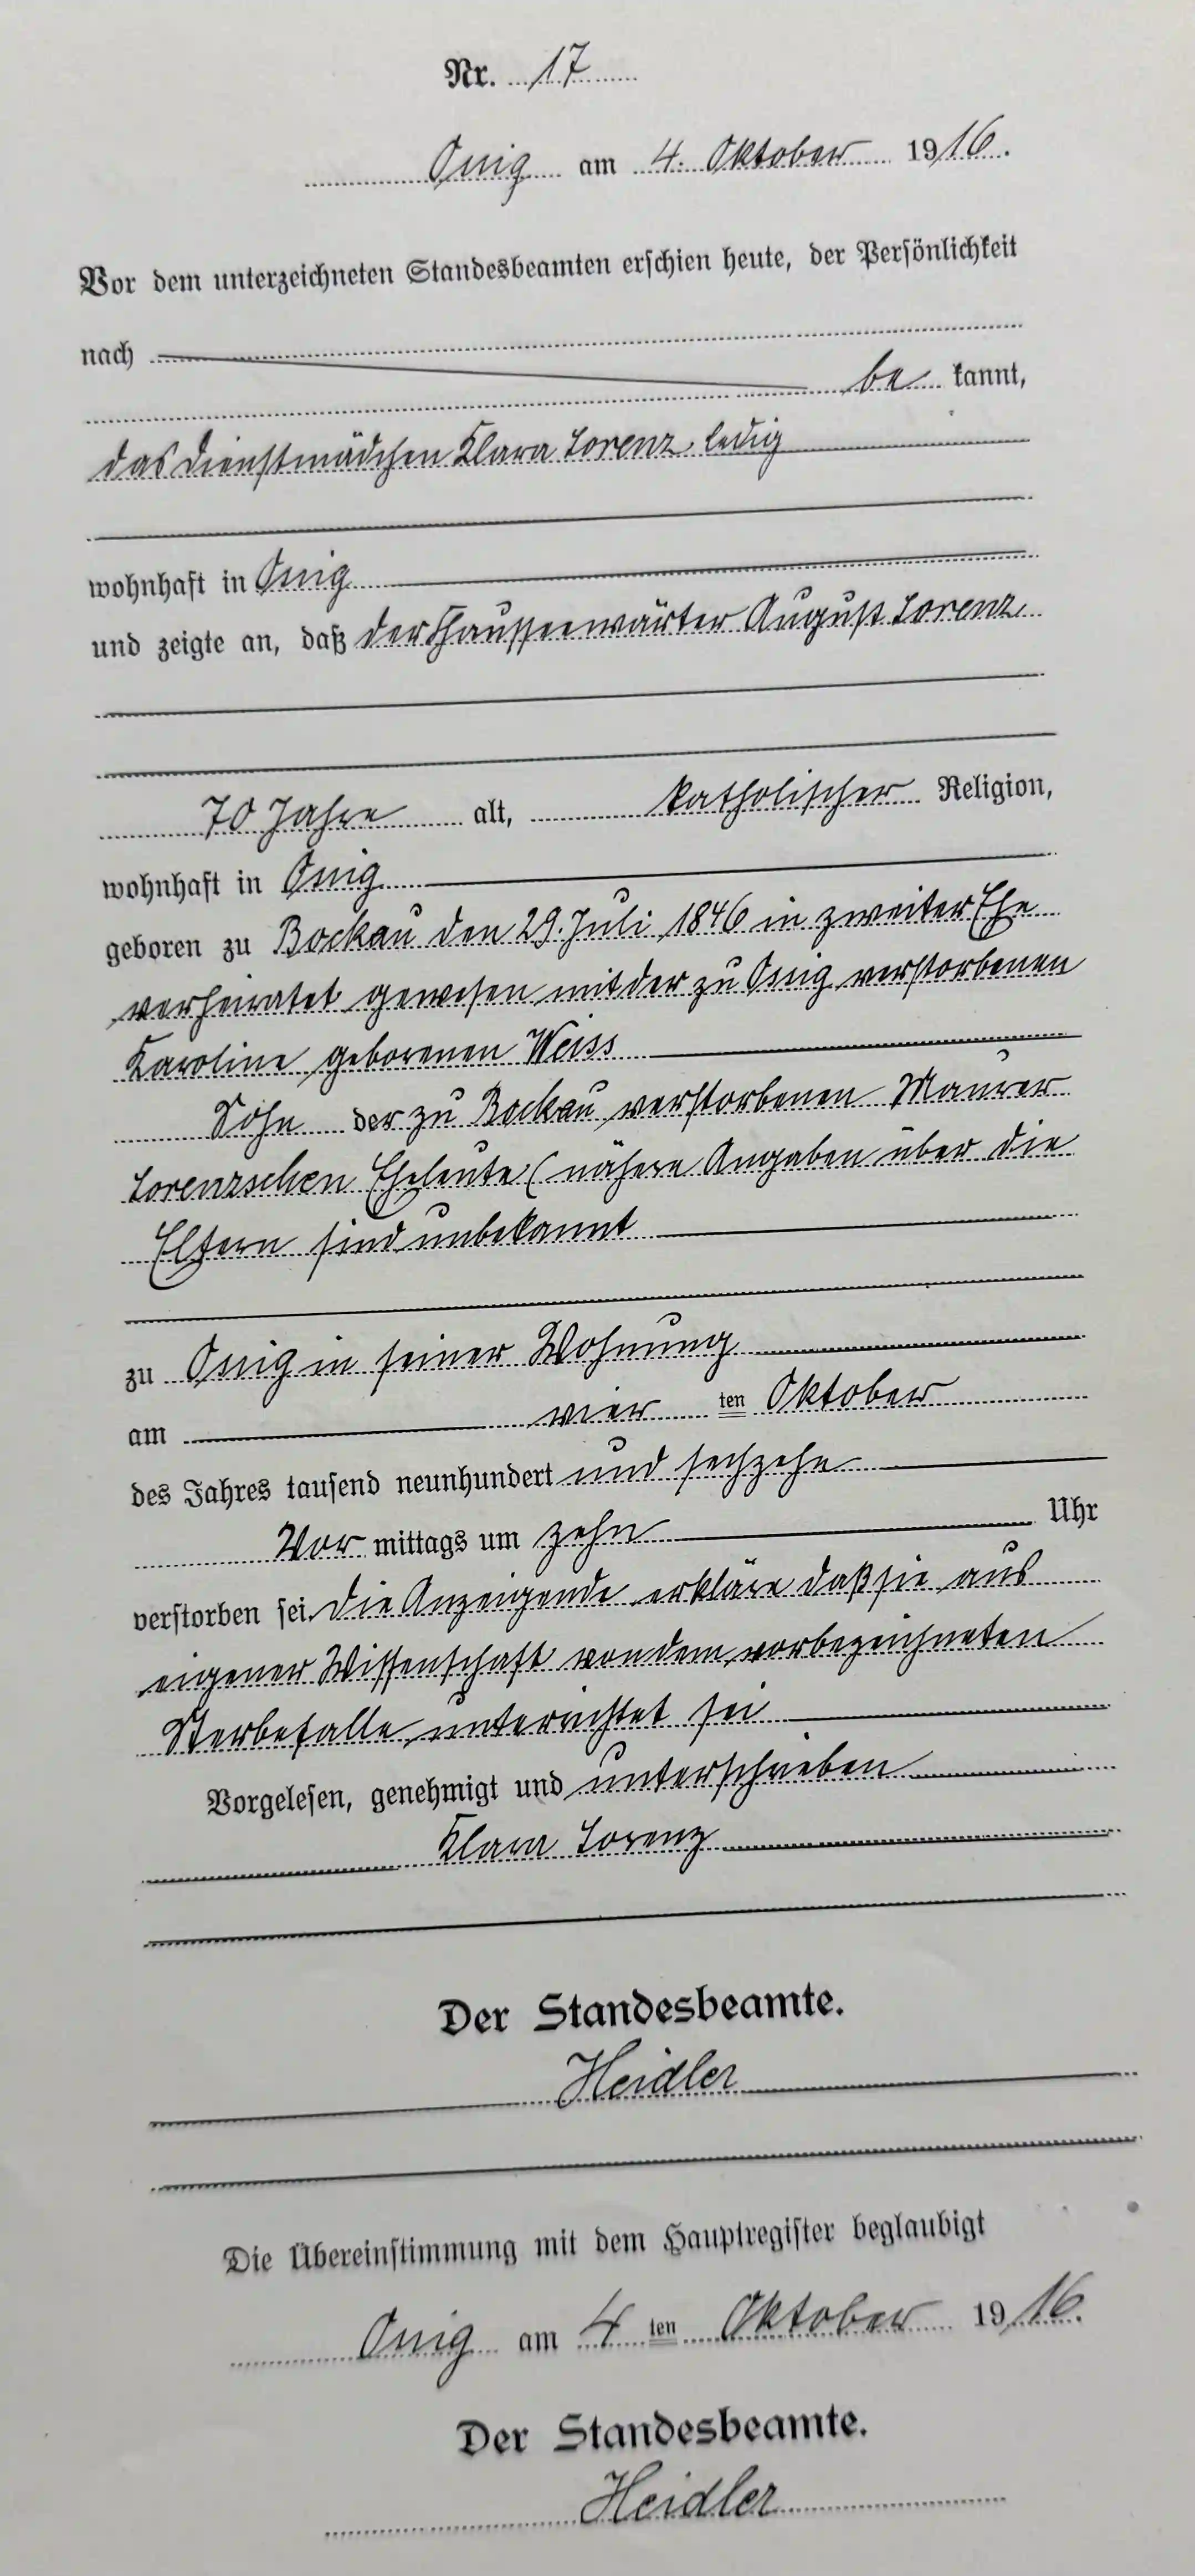 Nr. 17
Ossig am 4. Oktober 1916.
Vor dem unterzeichneten Standesbeamten erschien heute, der Persönlichkeit
nach
be kannt,
das Dienstmädchen Klara Lorenz, ledig
wohnhaft in Ossig
und zeigte an, daß der Chausseewärter August Lorenz
70 Jahre alt, katholischer Religion,
wohnhaft in Ossig
geboren zu Bockau den 29. Juli 1846 in zweiter Ehe
verheiratet gewesen mit der zu Ossig verstorbenen
Karoline geborenen Weiss
Sohn der zu Bockau verstorbenen Maurer
Lorenzschen Eheleute (nähere Angaben über die
Eltern sind unbekannt
zu Ossig in seiner Wohnung
am vier ten Oktober
des Jahres tausend neunhundert und sechzehn
Vor mittags um zehn Uhr
verstorben sei. Die Anzeigende erkläre daß sie aus
eigener Wissenschaft von dem vorbezeichneten
Sterbefalle unterrichtet sei
Vorgelesen, genehmigt und unterschrieben
Klara Lorenz
Der Standesbeamte.
Heidler
Die Übereinstimmung mit dem Hauptregister beglaubigt
Ossig am 4 ten Oktober 1916.
Der Standesbeamte.
Heidler